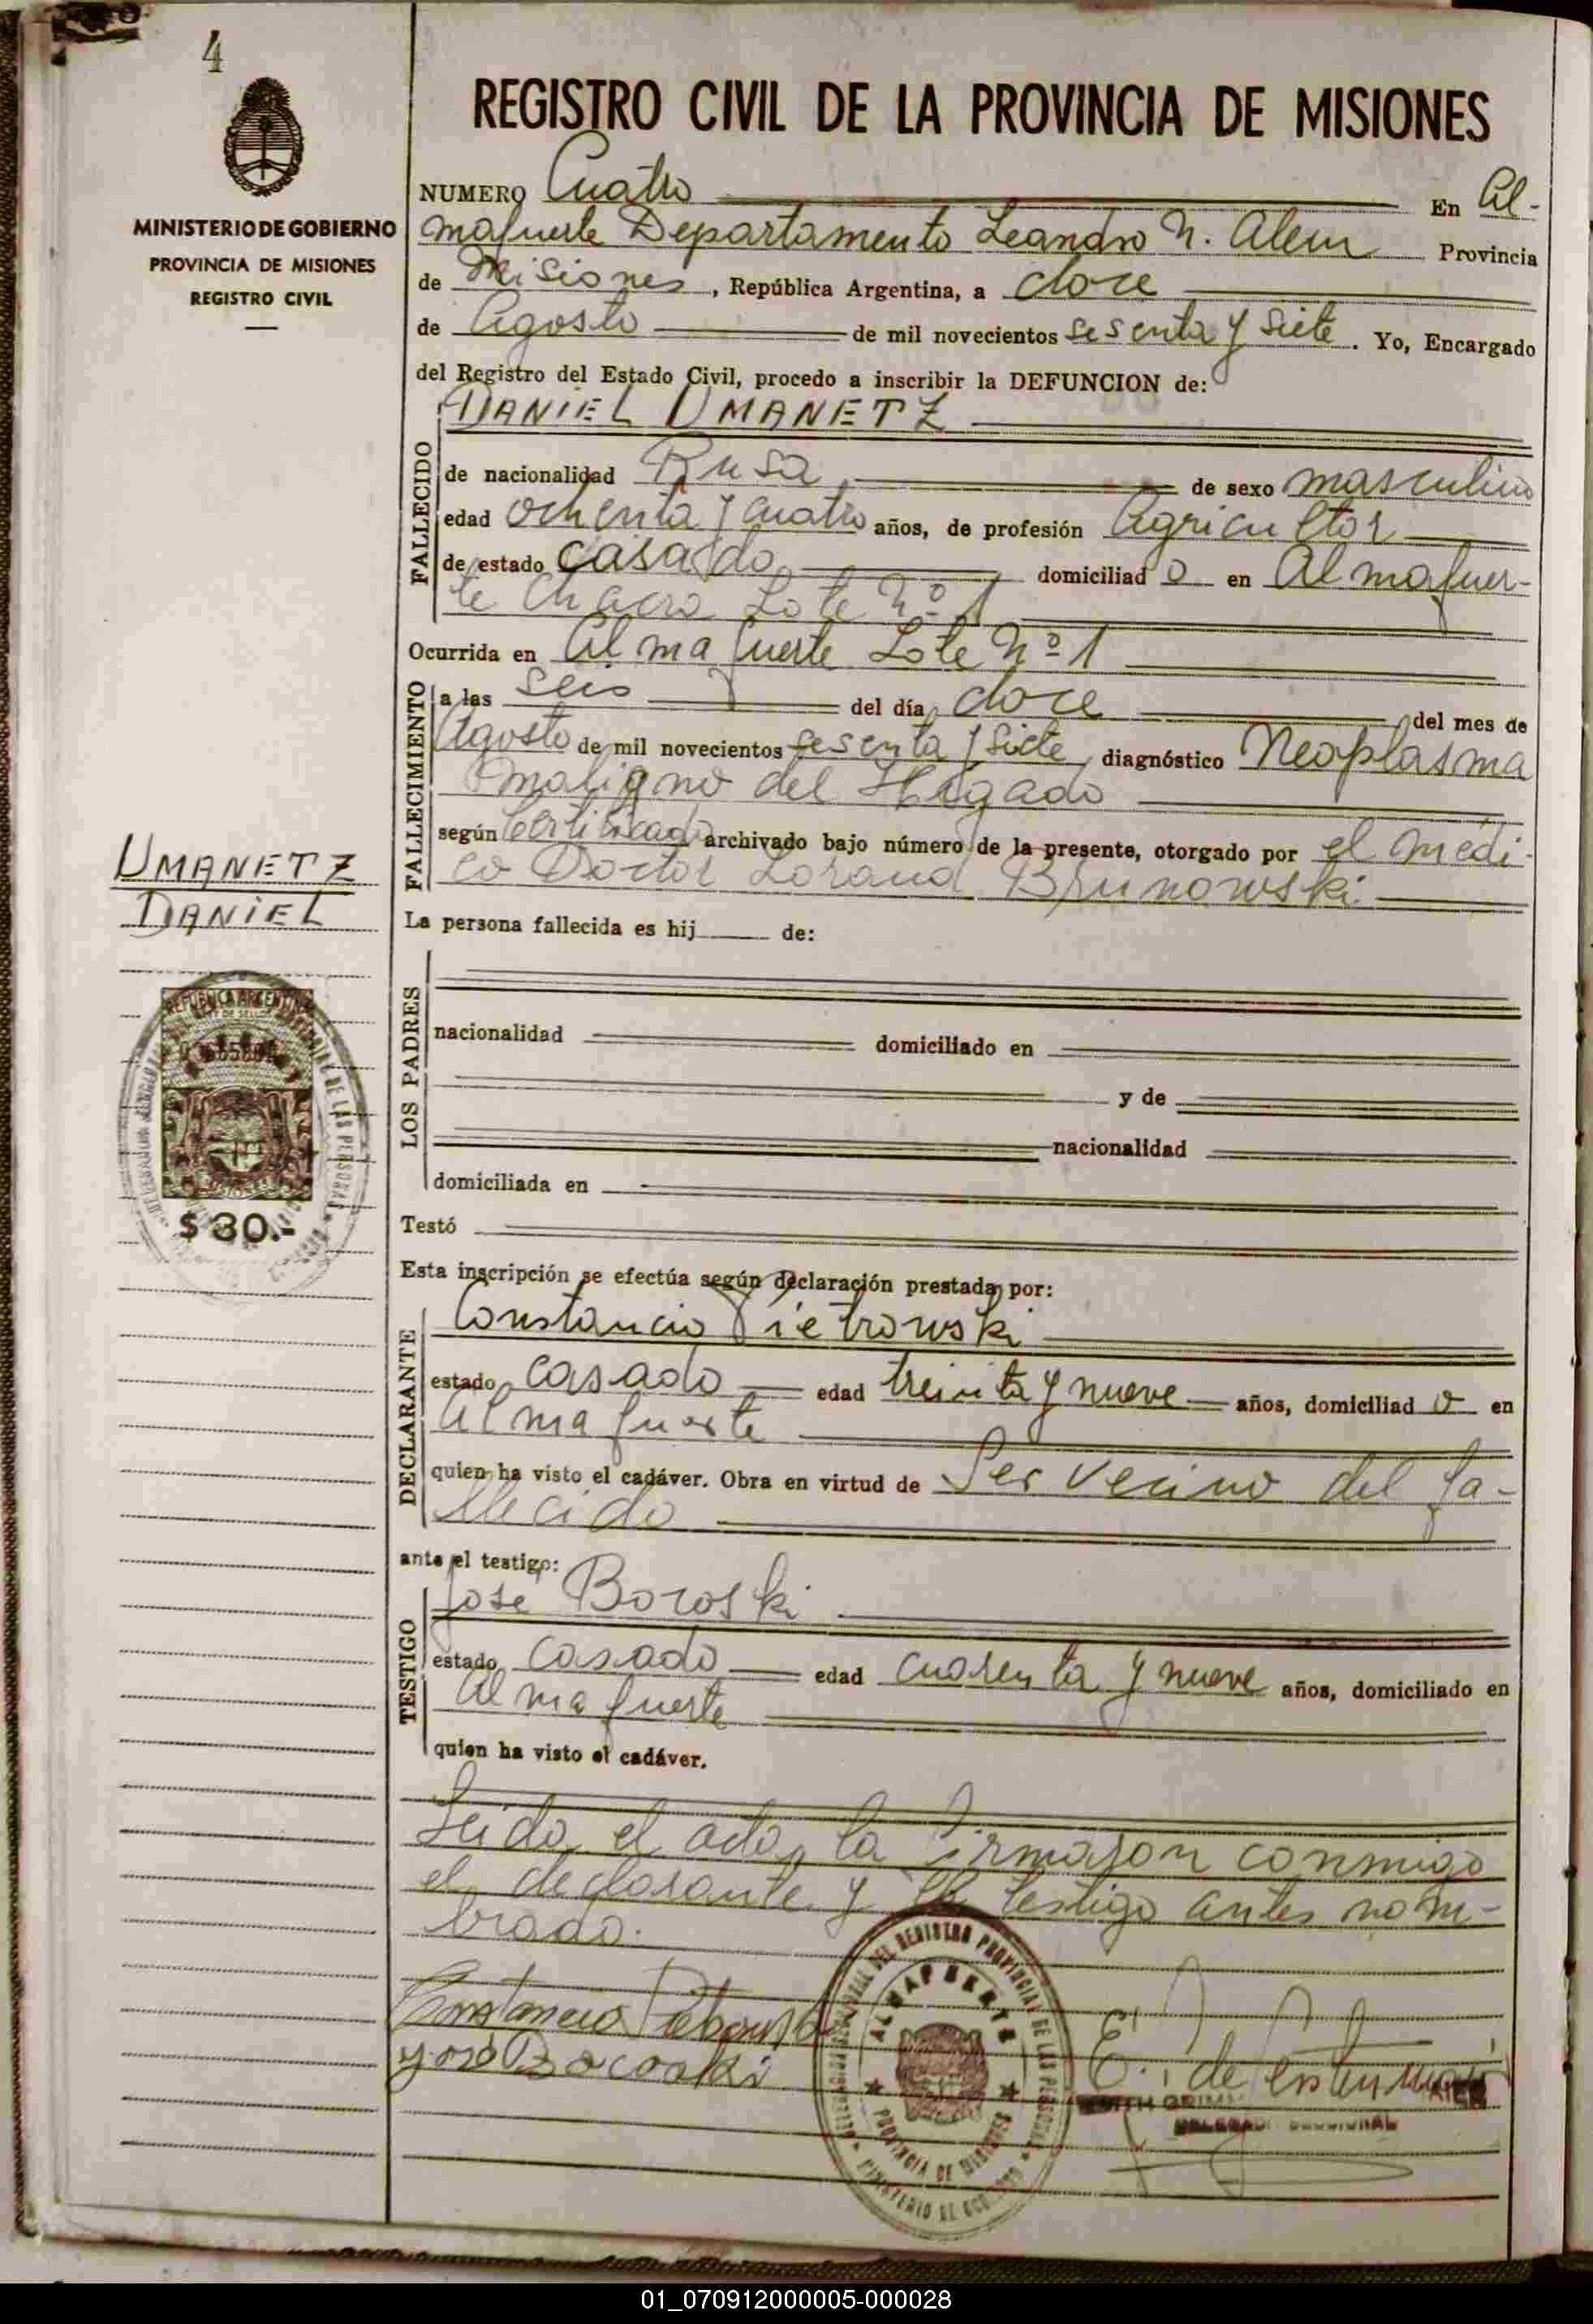 4
MINISTERIO DE GOBIERNO
PROVINCIA DE MISIONES
REGISTRO CIVIL
REGISTRO CIVIL DE LA PROVINCIA DE MISIONES
NUMERO Cuatro En Al-
mafuerte Departamento Leandro N. Alem Provincia
de Misiones, República Argentina, a doce
de Agosto de mil novecientos sesenta y siete. Yo, Encargado
del Registro del Estado Civil, procedo a inscribir la DEFUNCION de:
DANIEL UMANETZ
FALLECIDO
de nacionalidad Rusa de sexo masculino
edad ochenta y cuatro años, de profesión Agricultor
de estado casado domiciliado en Almafuer-
te Chacra Lote Nº 1
Ocurrida en Almafuerte Lote Nº 1
FALLECIMIENTO
a las seis del día doce del mes de
Agosto de mil novecientos sesenta y siete, diagnóstico Neoplasma
maligno del Hígado
según Certificado archivado bajo número de la presente, otorgado por el médi-
co Doctor Lorand Brunowski
UMANETZ
DANIEL
La persona fallecida es hij de:
LOS PADRES
nacionalidad domiciliado en
y de
nacionalidad
domiciliada en
Testó
REPUBLICA ARGENTINA
$ 30.-
Esta inscripción se efectúa según declaración prestada por:
DECLARANTE
Constancio Pietrowski
estado casado edad treinta y nueve años, domiciliado en
Almafuerte
quien ha visto el cadáver. Obra en virtud de Ser vecino del fa-
llecido
ante el testigo:
TESTIGO
José Boroski
estado casado edad cuarenta y nueve años, domiciliado en
Almafuerte
quien ha visto el cadáver.
Leida el acta, la firmaron conmigo
el declarante y el testigo antes nom-
brado.
Constancio
ALMAFUERTE
PROVINCIA DE MISIONES
01_070912000005-000028